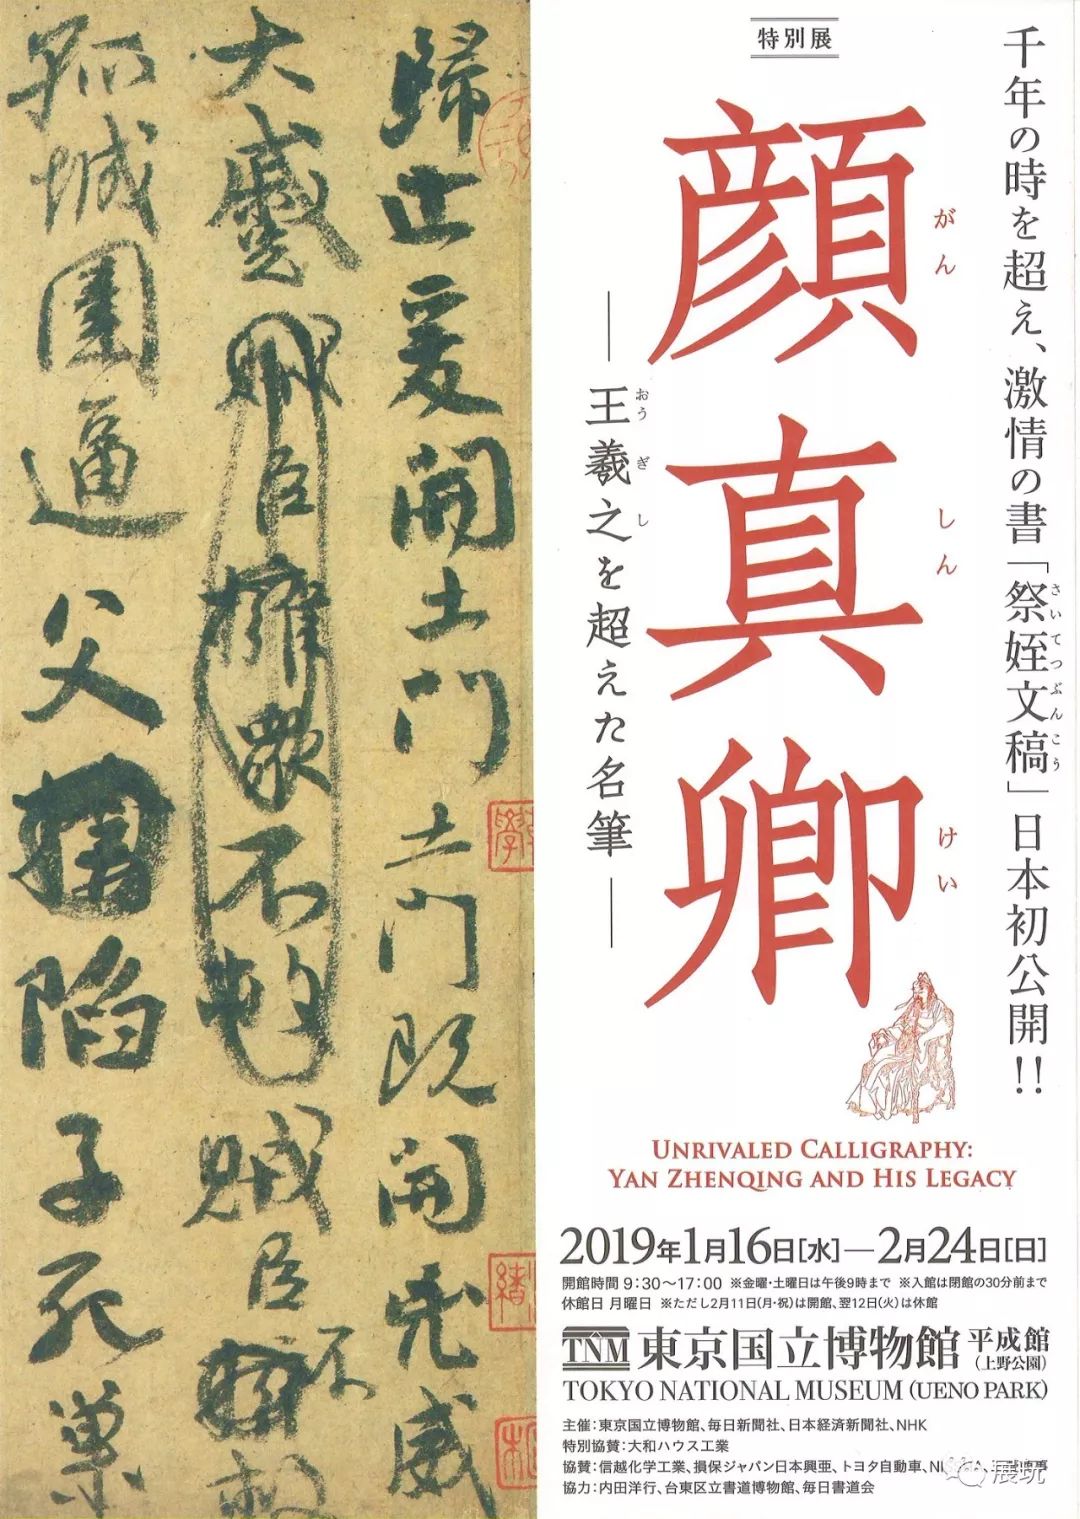 特別展
千年の時を超え、激情の書「祭姪文稿」日本初公開!!
さいてつぶんこう
顔真卿
がん しん けい
王羲之を超えた名筆
おう ぎ し
歸止爰開土門土門既開凶威
大蹙賊臣擁衆不救賊臣不救
孤城圍逼父陷子死巢
UNRIVALED CALLIGRAPHY:
YAN ZHENQING AND HIS LEGACY
2019年1月16日[水]―2月24日[日]
開館時間 9:30〜17:00 ※金曜・土曜日は午後9時まで ※入館は閉館の30分前まで
休館日 月曜日 ※ただし2月11日(月・祝)は開館、翌12日(火)は休館
TNM 東京国立博物館 平成館
(上野公園)
TOKYO NATIONAL MUSEUM (UENO PARK)
主催:東京国立博物館、毎日新聞社、日本経済新聞社、NHK
特別協賛:大和ハウス工業
協賛:信越化学工業、損保ジャパン日本興亜、トヨタ自動車、
協力:内田洋行、台東区立書道博物館、毎日書道会
展玩